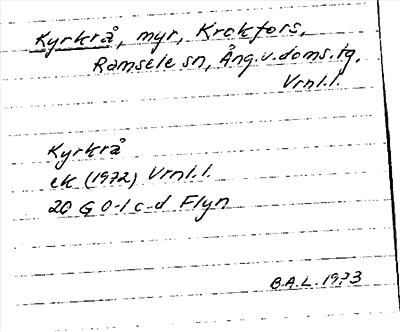 Kyrkrå, myr, Krokfors,
Ramsele sn, Ång.v.doms.tg.
Vrnl.l.
Kyrkrå
ek (1972) Vrnl.l.
20 G 0-1 c-d Flyn
B.A.L. 1973